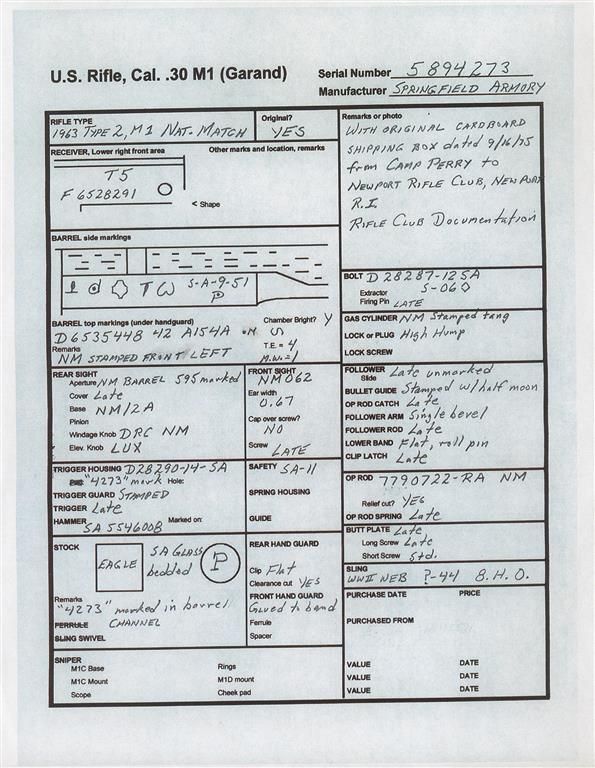 U.S. Rifle, Cal. .30 M1 (Garand)
Serial Number 5894273
Manufacturer SPRINGFIELD ARMORY
RIFLE TYPE
1963 TYPE 2, M1 NAT. MATCH
Original?
YES
RECEIVER, Lower right front area
Other marks and location, remarks
T5
F6528291
< Shape
BARREL side markings
S-A-9-51
P
BARREL top markings (under handguard)
Chamber Bright? Y
D6535448 42 A154A •M S
Remarks
T.E. = 4
NM STAMPED FRONT LEFT
M.W. = 1
REAR SIGHT
Aperture NM BARREL 595 marked
Cover Late
Base NM/2A
Pinion
Windage Knob DRC NM
Elev. Knob LUX
FRONT SIGHT
NM 062
Ear width
0.67
Cap over screw?
NO
Screw LATE
TRIGGER HOUSING D28290-14-SA
"4273" mark Hole:
TRIGGER GUARD STAMPED
TRIGGER Late
HAMMER Marked on:
SA 5546008
SAFETY SA-11
SPRING HOUSING
GUIDE
STOCK
EAGLE
SA GLASS
bedded
P
Remarks
"4273" marked in barrel
FERRULE CHANNEL
SLING SWIVEL
REAR HAND GUARD
Clip Flat
Clearance cut YES
FRONT HAND GUARD
Glued to band
Ferrule
Spacer
SNIPER
M1C Base
M1C Mount
Scope
Rings
M1D mount
Cheek pad
Remarks or photo
WITH ORIGINAL CARDBOARD
SHIPPING BOX dated 9/16/75
from CAMP PERRY to
NEWPORT RIFLE CLUB, NEWPORT
R.I.
RIFLE CLUB Documentation
BOLT D28287-12SA
Extractor S-06◊
Firing Pin LATE
GAS CYLINDER NM Stamped tang
LOCK or PLUG High Hump
LOCK SCREW
FOLLOWER Late unmarked
Slide
BULLET GUIDE Stamped w/half moon
OP ROD CATCH Late
FOLLOWER ARM Single bevel
FOLLOWER ROD Late
LOWER BAND Flat, roll pin
CLIP LATCH Late
OP ROD 7790722-RA NM
Relief cut? YES
OP ROD SPRING Late
BUTT PLATE Late
Long Screw Late
Short Screw Std.
SLING
WWII NEB ?-44 B.H.O.
PURCHASE DATE PRICE
PURCHASED FROM
VALUE DATE
VALUE DATE
VALUE DATE